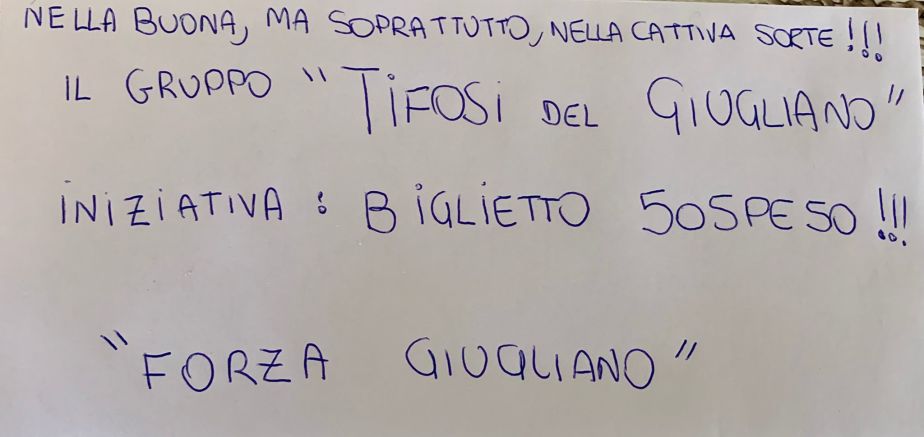 NELLA BUONA, MA SOPRATTUTTO, NELLA CATTIVA SORTE!!!
IL GRUPPO "TiFOSi DEL GIUGLIANO"
iNiZiATIVA : BiGLiETTO SOSPESO!!!
"FORZA GIUGLIANO"